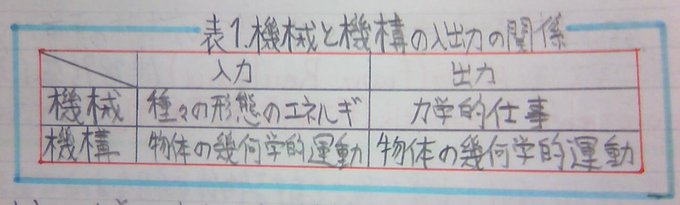 表1.機械と機構の入出力の関係
入力 出力
機械 種々の形態のエネルギ 力学的仕事
機構 物体の幾何学的運動 物体の幾何学的運動